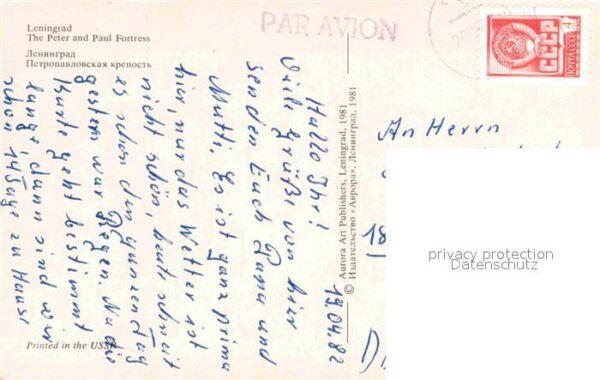 Leningrad
The Peter and Paul Fortress
Ленинград
Петропавловская крепость
PAR AVION
СССР
ПОЧТА СССР
4
Hallo Ihr!
Viele Grüße von hier
senden Euch Papa und
Mutti. Es ist ganz prima
hier, nur das Wetter ist
nicht schön, heute schneit
es schon den ganzen Tag
gestern war Regen. Na die
Karte geht bestimmt
lange, dann sind wir
schon 14 Tage zu Hause
19.04.82
© Aurora Art Publishers, Leningrad, 1981
Издательство «Аврора», Ленинград, 1981
An Herrn
18
D
privacy protection
Datenschutz
Printed in the USSR